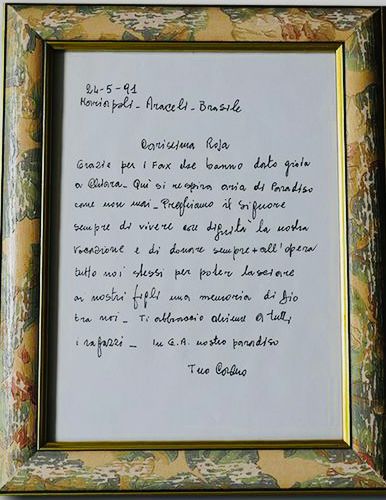 24-5-91
Mariapoli - Araceli - Brasile
Carissima Rosa
Grazie per i Fax che hanno dato gioia
a Chiara - Qui si respira aria di Paradiso
come non mai - Preghiamo il Signore
sempre di vivere con dignità la nostra
vocazione e di donare sempre + all'opera
tutto noi stessi per poter lasciare
ai nostri figli una memoria di Dio
tra noi - Ti abbraccio assieme a tutti
i ragazzi - In G.A. nostro paradiso
Tuo